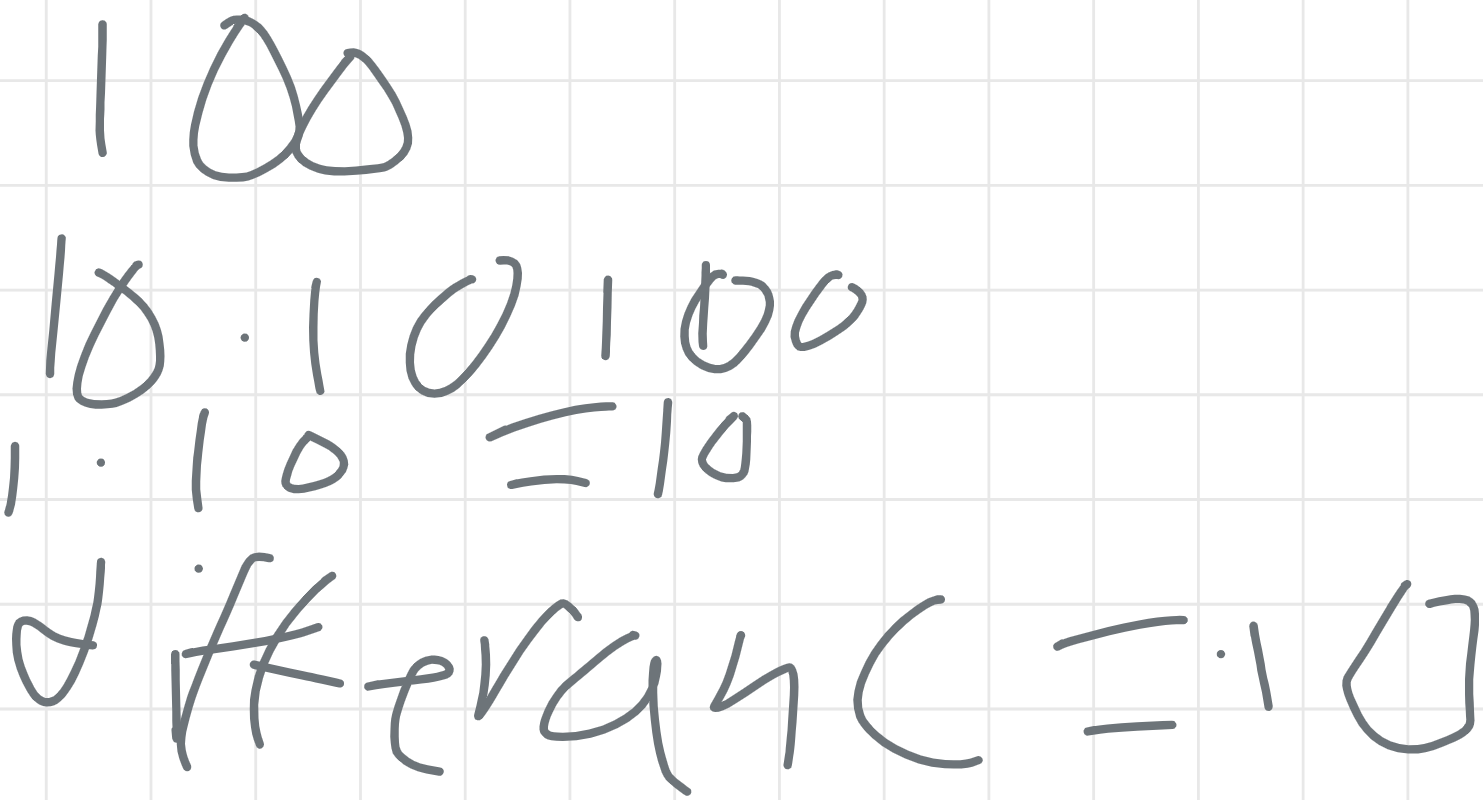 100
10·10 100
1·10 = 10
differanc = ·10